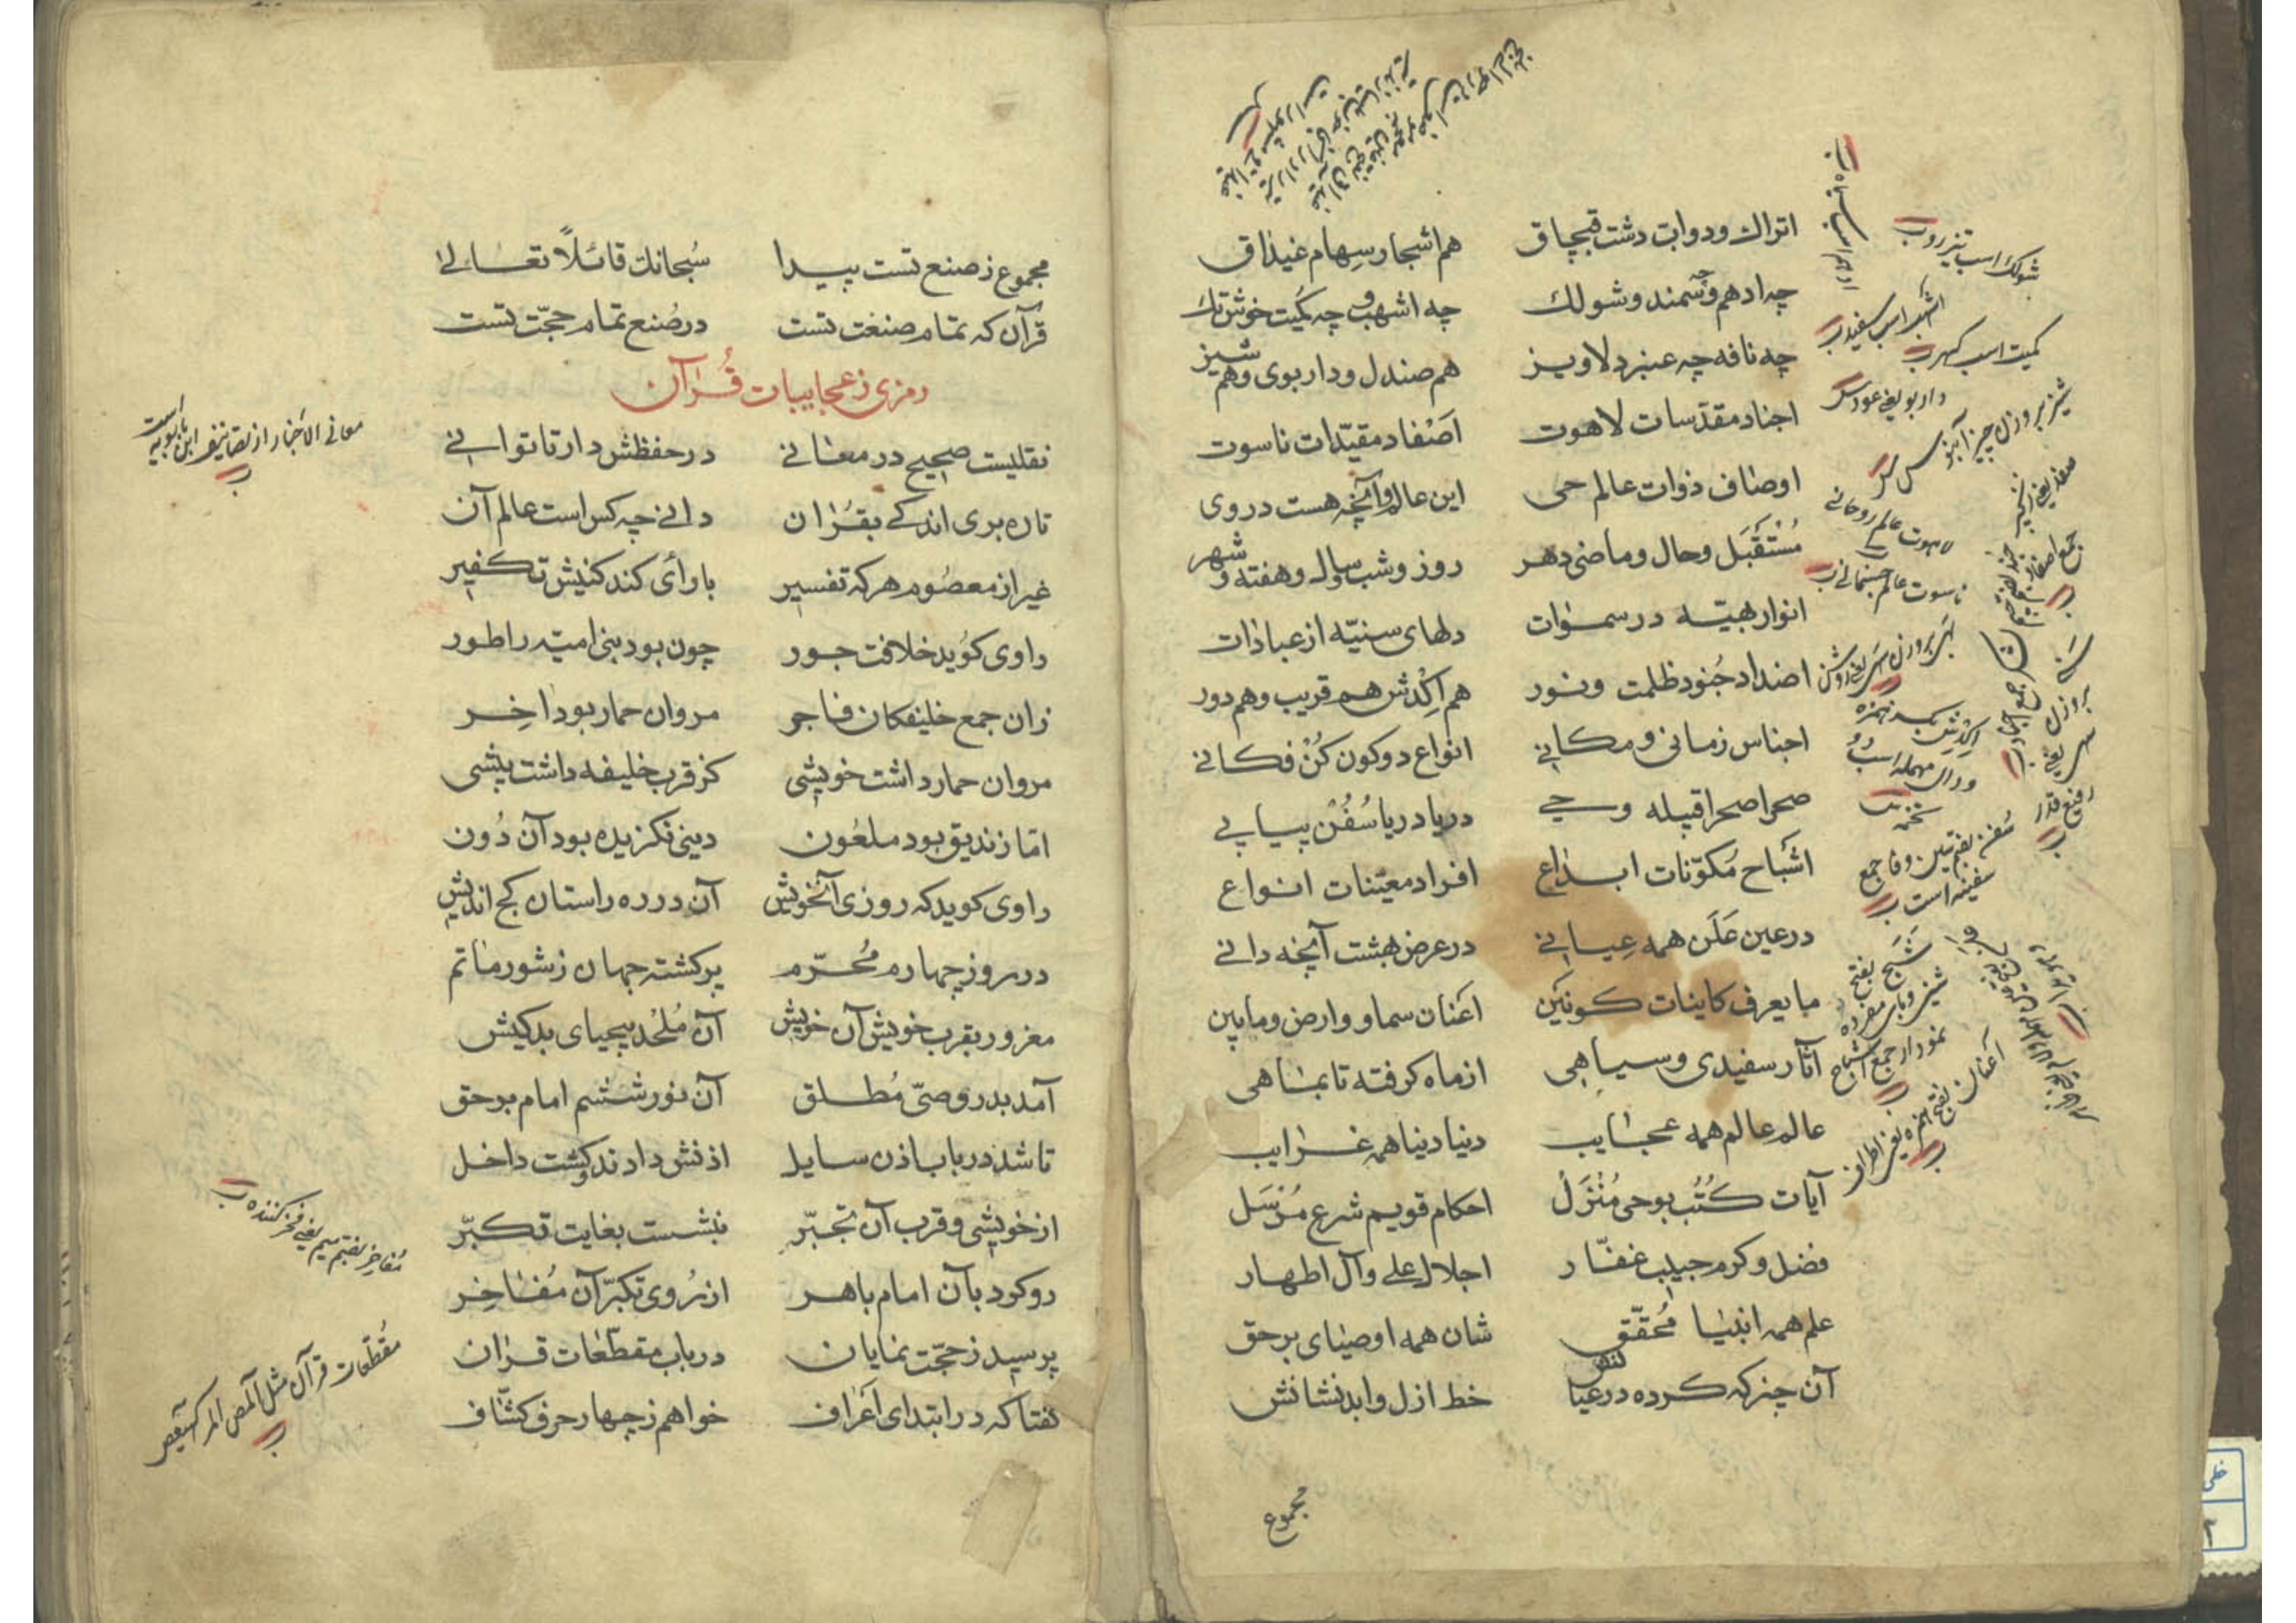 اتراك ودوابّ دشت قبچاق هم اشجار سهام غیذاق
چه ادهم وچه سمند وشولك چه اشهب وچه کمیت خوش تك
چه نافه چه عنبر دلاویز هم صندل وداربوی وهم شیز
اجناد مقدّسات لاهوت اصفاد مقیّدات ناسوت
اوصاف ذوات عالم حی این عالم وآنچه هست در وی
مُسْتَقْبَل وحال وماضی دهر روز وشب وسال وهفته وشهر
انوار بهیّه در سموات دلهای سنیّه از عبادات
اضداد جُنود ظلمت ونور هم اِکْدش هم قریب وهم دور
اجناس زمانی ومکانی انواع دو کون کُنْ فکانی
صحرا صحرا قبیله وحی دریا دریا سُفُنْ پیاپی
اشباح مُکوّنات ابداع افراد معیّنات انواع
در عین عَلَن همه عیانی در عرض بهشت آنچه دانی
ما یعرف کاینات کونین اعنان سما و ارض وما بین
آثار سفیدی وسیاهی از ماه کرفته تا بماهی
عالم عالم همه عجایب دنیا دنیا همه غرایب
آیات کُتُب بوحی مُنْزَلْ احکام قویم شرع مُرْسَل
فضل وکرم حبیب غفّار اجلال علی وآل اطهار
علم همه انبیا مُحقّق شان همه اوصیای برحق
آن چیز که کرده در عیان نقش خط ازل وابد نشانش
مجموع
شولك اسب تیزرو
اشهب اسب سفید
کمیت اسب کهر
داربوی یعنی عود
لاهوت عالم روحانی
ناسوت عالم جسمانی
سُفن بضمتین وفا جمع
سفینه است
اعنان بفتح همزه یعنی اطراف
مجموع ز صنع تست پیدا سُبحانك قائلاً تعالی
قرآن که تمام صنعت تست در صُنع تمام حجّت تست
رمزی ز عجایبات قُرآن
نقلیست صحیح در معانی در حفظش دار تا توانی
تا ره بری اندکی بقُران دانی چه کس است عالم آن
غیر از معصوم هر که تفسیر با رأی کند کنیش تکفیر
راوی کوید خلافت جور چون بود بنی امیّه را طور
زان جمع خلیفکان فاجر مروان حمار بود آخِر
مروان حمار داشت خویشی کز قرب خلیفه داشت پیشی
امّا زندیق بود ملعون دینی نکزیده بود آن دُون
راوی کوید که روزی آنخویش آن در ره راستان کج اندیش
در روز چهارم مُحرّم پر کشته جهان ز شور ماتم
مغرور بقرب خویش آن خویش آن مُلحُد بیحیای بدکیش
آمد بدر وصیّ مُطلق آن نور ششم امام برحق
تا شد در باب اذن سایل اذنش دادند وکشت داخل
از خویشی وقرب آن تجبّر بنشست بغایت تکبّر
رو کرد بآن امام باهر از رُوی تکبّر آن مُفاخِر
پرسید ز حجّت نمایان در باب مقطّعات قران
کفتا که در ابتدای اَعراف خواهم ز چهار حرف کشّاف
معانی الاخبار از تصانیف ابن بابویه است
مُفاخِر بضم میم یعنی فخر کننده
مُقطّعات قرآن مثل المص المر کهیعص